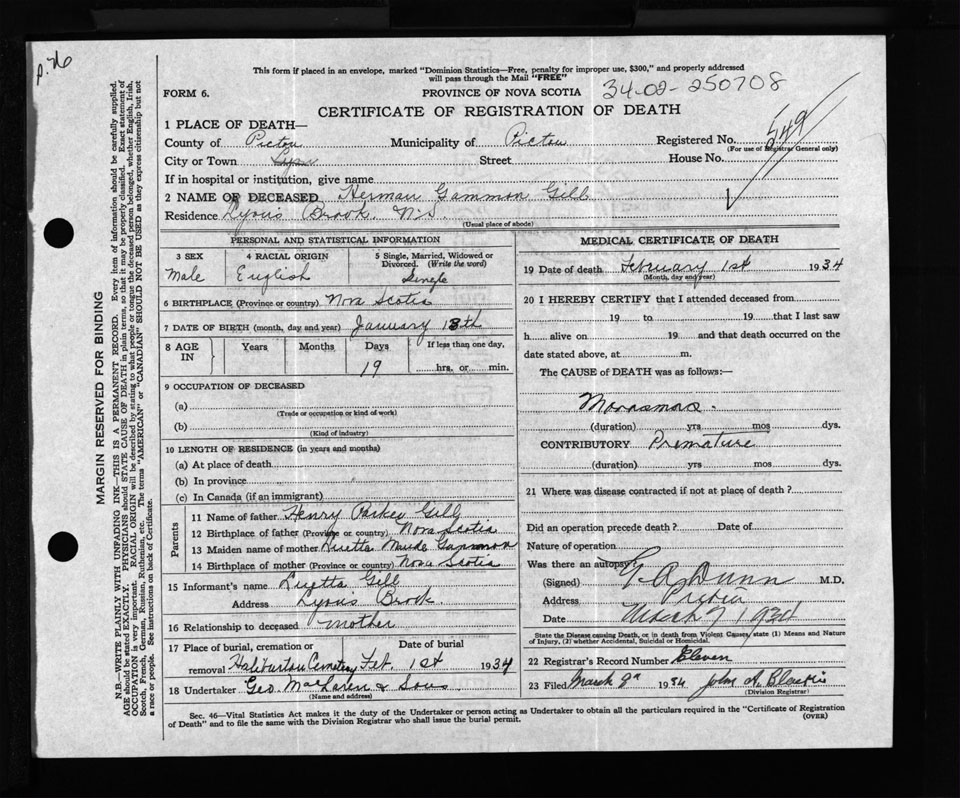 p. 76
This form if placed in an envelope, marked "Dominion Statistics—Free, penalty for improper use, $300," and properly addressed
will pass through the Mail "FREE"
FORM 6.
PROVINCE OF NOVA SCOTIA
34-02-250708
CERTIFICATE OF REGISTRATION OF DEATH
1 PLACE OF DEATH—
County of Pictou Municipality of Pictou Registered No. 549
(For use of Registrar General only)
City or Town Street House No.
If in hospital or institution, give name
2 NAME OF DECEASED Herman Gammon Gill
Residence Lyons Brook N.S.
(Usual place of abode)
PERSONAL AND STATISTICAL INFORMATION
3 SEX 4 RACIAL ORIGIN 5 Single, Married, Widowed or
Divorced. (Write the word)
Male English Single
6 BIRTHPLACE (Province or country) Nova Scotia
7 DATE OF BIRTH (month, day and year) January 13th
8 AGE IN Years Months Days If less than one day,
19 hrs. or min.
9 OCCUPATION OF DECEASED
(a)
(Trade or occupation or kind of work)
(b)
(Kind of industry)
10 LENGTH OF RESIDENCE (in years and months)
(a) At place of death
(b) In province
(c) In Canada (if an immigrant)
Parents
11 Name of father Henry Gill
12 Birthplace of father (Province or country) Nova Scotia
13 Maiden name of mother Gammon
14 Birthplace of mother (Province or country) Nova Scotia
15 Informant's name Gill
Address Lyons Brook
16 Relationship to deceased mother
17 Place of burial, cremation or Date of burial
removal Haliburton Cemetery Feb. 1st 1934
18 Undertaker Geo. MacLaren & Sons
(Name and address)
MEDICAL CERTIFICATE OF DEATH
19 Date of death February 1st 1934
(Month, day and year)
20 I HEREBY CERTIFY that I attended deceased from
19 to 19 that I last saw
h alive on 19 and that death occurred on the
date stated above, at m.
The CAUSE of DEATH was as follows:—
Marasmus.
(duration) yrs mos dys.
CONTRIBUTORY Premature
(duration) yrs mos dys.
21 Where was disease contracted if not at place of death?
Did an operation precede death? Date of
Nature of operation
Was there an autopsy?
(Signed) G A Dunn M.D.
Address Pictou
Date March 7 1934
State the Disease causing Death, or in death from Violent Causes, state (1) Means and Nature
of Injury, (2) whether Accidental, Suicidal or Homicidal.
22 Registrar's Record Number Eleven
23 Filed March 9th 1934 John A.
(Division Registrar)
Sec. 46—Vital Statistics Act makes it the duty of the Undertaker or person acting as Undertaker to obtain all the particulars required in the "Certificate of Registration
of Death" and to file the same with the Division Registrar who shall issue the burial permit.
(OVER)
MARGIN RESERVED FOR BINDING
N.B.—WRITE PLAINLY WITH UNFADING INK—THIS IS A PERMANENT RECORD. Every item of information should be carefully supplied.
AGE should be stated EXACTLY. PHYSICIANS should STATE CAUSE OF DEATH in plain terms, so that it may be properly classified. Exact statement of
OCCUPATION is very important. RACIAL ORIGIN will be described by stating to what people or tongue the deceased person belonged, whether English, Irish,
Scotch, French, German, Russian, Ruthenian, etc. The terms "AMERICAN" or "CANADIAN" SHOULD NOT BE USED as they express citizenship but not
a race or people. See instructions on back of Certificate.